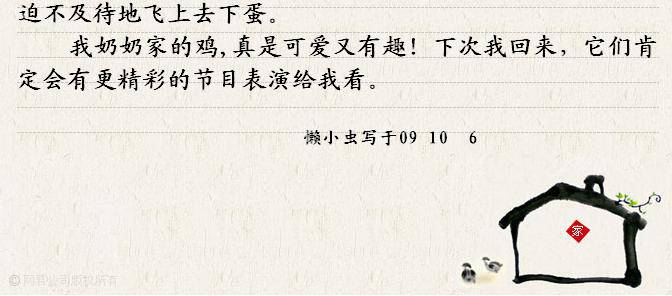 迫不及待地飞上去下蛋。
我奶奶家的鸡,真是可爱又有趣！下次我回来，它们肯
定会有更精彩的节目表演给我看。
懒小虫写于09 10 6
家
© 网易公司版权所有